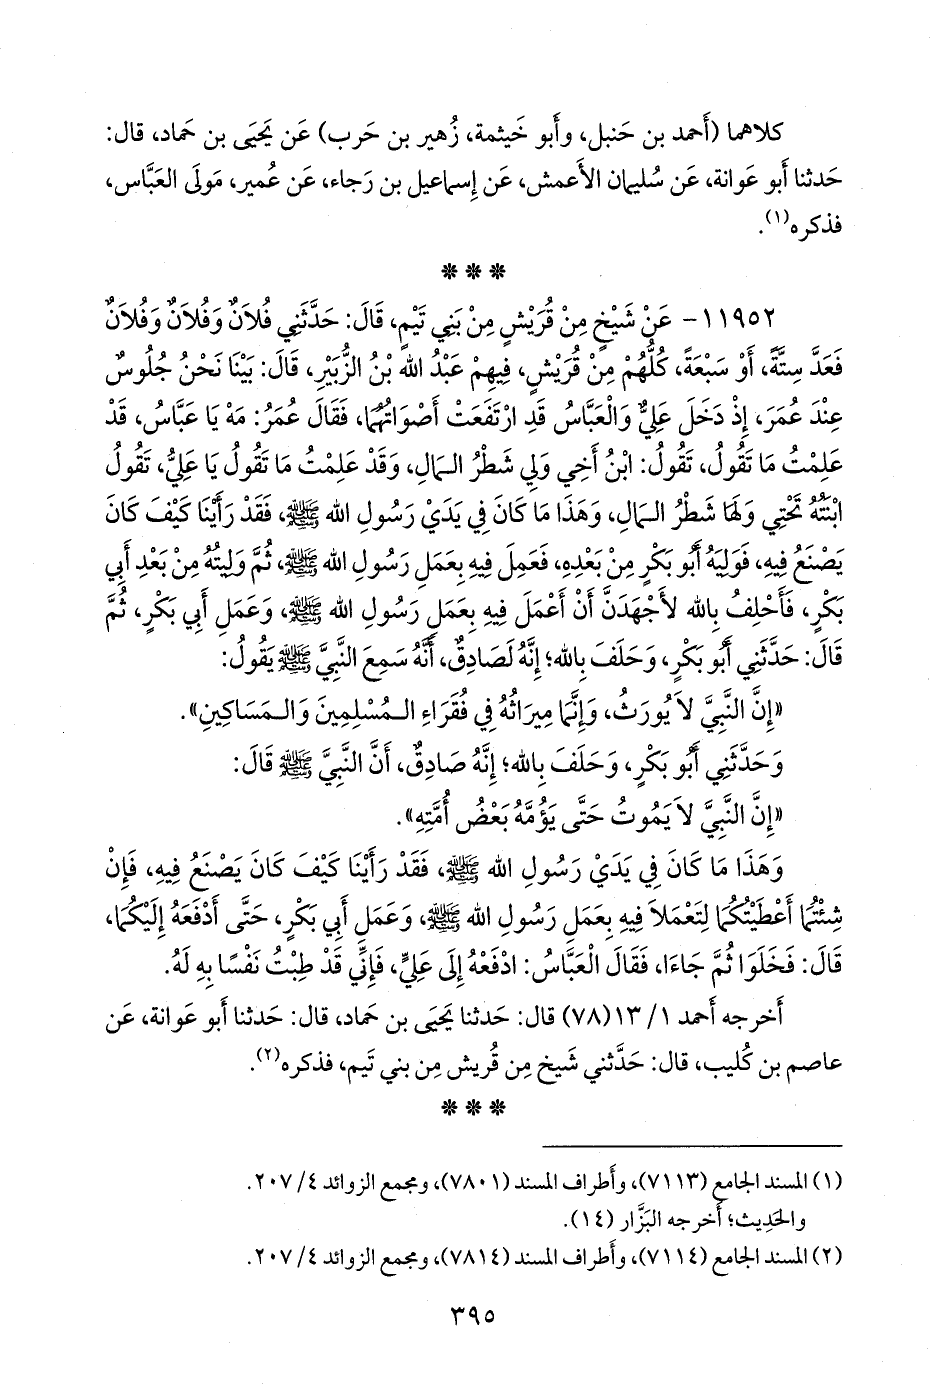 كلاهما (أَحمد بن حَنبل، وأَبو خَيثمة، زُهير بن حَرب) عَن يَحيَى بن حَماد، قال:
حَدثنا أَبو عَوانة، عَن سُليمان الأَعمش، عَن إِسماعيل بن رَجاء، عَن عُمير، مَولَى العَبَّاس،
فذكره(١).
* * *
١١٩٥٢- عَنْ شَيْخٍ مِنْ قُرَيْشٍ مِنْ بَنِي تَيْمٍ، قَالَ: حَدَّثَنِي فُلاَنٌ وَفُلاَنٌ وَفُلاَنٌ
فَعَدَّ سِتَّةً، أَوْ سَبْعَةً، كُلُّهُمْ مِنْ قُرَيْشٍ، فِيهِمْ عَبْدُ الله بْنُ الزُّبَيْرِ، قَالَ: بَيْنَا نَحْنُ جُلُوسٌ
عِنْدَ عُمَرَ، إِذْ دَخَلَ عَلِيٌّ وَالْعَبَّاسُ قَدِ ارْتَفَعَتْ أَصْوَاتُهُمَا، فَقَالَ عُمَرُ: مَهْ يَا عَبَّاسُ، قَدْ
عَلِمْتُ مَا تَقُولُ، تَقُولُ: ابْنُ أَخِي وَلِي شَطْرُ الـمَالِ، وَقَدْ عَلِمْتُ مَا تَقُولُ يَا عَلِيُّ، تَقُولُ
ابْنَتُهُ تَحْتِي وَلَهَا شَطْرُ الـمَالِ، وَهَذَا مَا كَانَ فِي يَدَيْ رَسُولِ الله ﷺ، فَقَدْ رَأَيْنَا كَيْفَ كَانَ
يَصْنَعُ فِيهِ، فَوَلِيَهُ أَبُو بَكْرٍ مِنْ بَعْدِهِ، فَعَمِلَ فِيهِ بِعَمَلِ رَسُولِ الله ﷺ، ثُمَّ وَلِيتُهُ مِنْ بَعْدِ أَبِي
بَكْرٍ، فَأَحْلِفُ بِالله لأَجْهَدَنَّ أَنْ أَعْمَلَ فِيهِ بِعَمَلِ رَسُولِ الله ﷺ، وَعَمَلِ أَبِي بَكْرٍ، ثُمَّ
قَالَ: حَدَّثَنِي أَبُو بَكْرٍ، وَحَلَفَ بِالله؛ إِنَّهُ لَصَادِقٌ، أَنَّهُ سَمِعَ النَّبِيَّ ﷺ يَقُولُ:
«إِنَّ النَّبِيَّ لاَ يُورَثُ، وَإِنَّمَا مِيرَاثُهُ فِي فُقَرَاءِ الـمُسْلِمِينَ وَالـمَسَاكِينِ».
وَحَدَّثَنِي أَبُو بَكْرٍ، وَحَلَفَ بِالله؛ إِنَّهُ صَادِقٌ، أَنَّ النَّبِيَّ ﷺ قَالَ:
«إِنَّ النَّبِيَّ لاَ يَمُوتُ حَتَّى يَؤُمَّهُ بَعْضُ أُمَّتِهِ».
وَهَذَا مَا كَانَ فِي يَدَيْ رَسُولِ الله ﷺ، فَقَدْ رَأَيْنَا كَيْفَ كَانَ يَصْنَعُ فِيهِ، فَإِنْ
شِئْتُمَا أَعْطَيْتُكُمَا لِتَعْمَلاَ فِيهِ بِعَمَلِ رَسُولِ الله ﷺ، وَعَمَلِ أَبِي بَكْرٍ، حَتَّى أَدْفَعَهُ إِلَيْكُمَا،
قَالَ: فَخَلَوَا ثُمَّ جَاءَا، فَقَالَ الْعَبَّاسُ: ادْفَعْهُ إِلَى عَلِيٍّ، فَإِنِّي قَدْ طِبْتُ نَفْسًا بِهِ لَهُ.
أَخرجه أَحمد ١/ ١٣(٧٨) قال: حَدثنا يَحيَى بن حَماد، قال: حَدثنا أَبو عَوانة، عَن
عاصم بن كُليب، قال: حَدَّثني شَيخ مِن قُريش مِن بني تَيم، فذكره(٢).
* * *
(١) المسند الجامع (٧١١٣)، وأَطراف المسند (٧٨٠١)، ومجمع الزوائد ٤/ ٢٠٧.
والحَدِيث؛ أَخرجه البَزَّار (١٤).
(٢) المسند الجامع (٧١١٤)، وأَطراف المسند (٧٨١٤)، ومجمع الزوائد ٤/ ٢٠٧.
٣٩٥